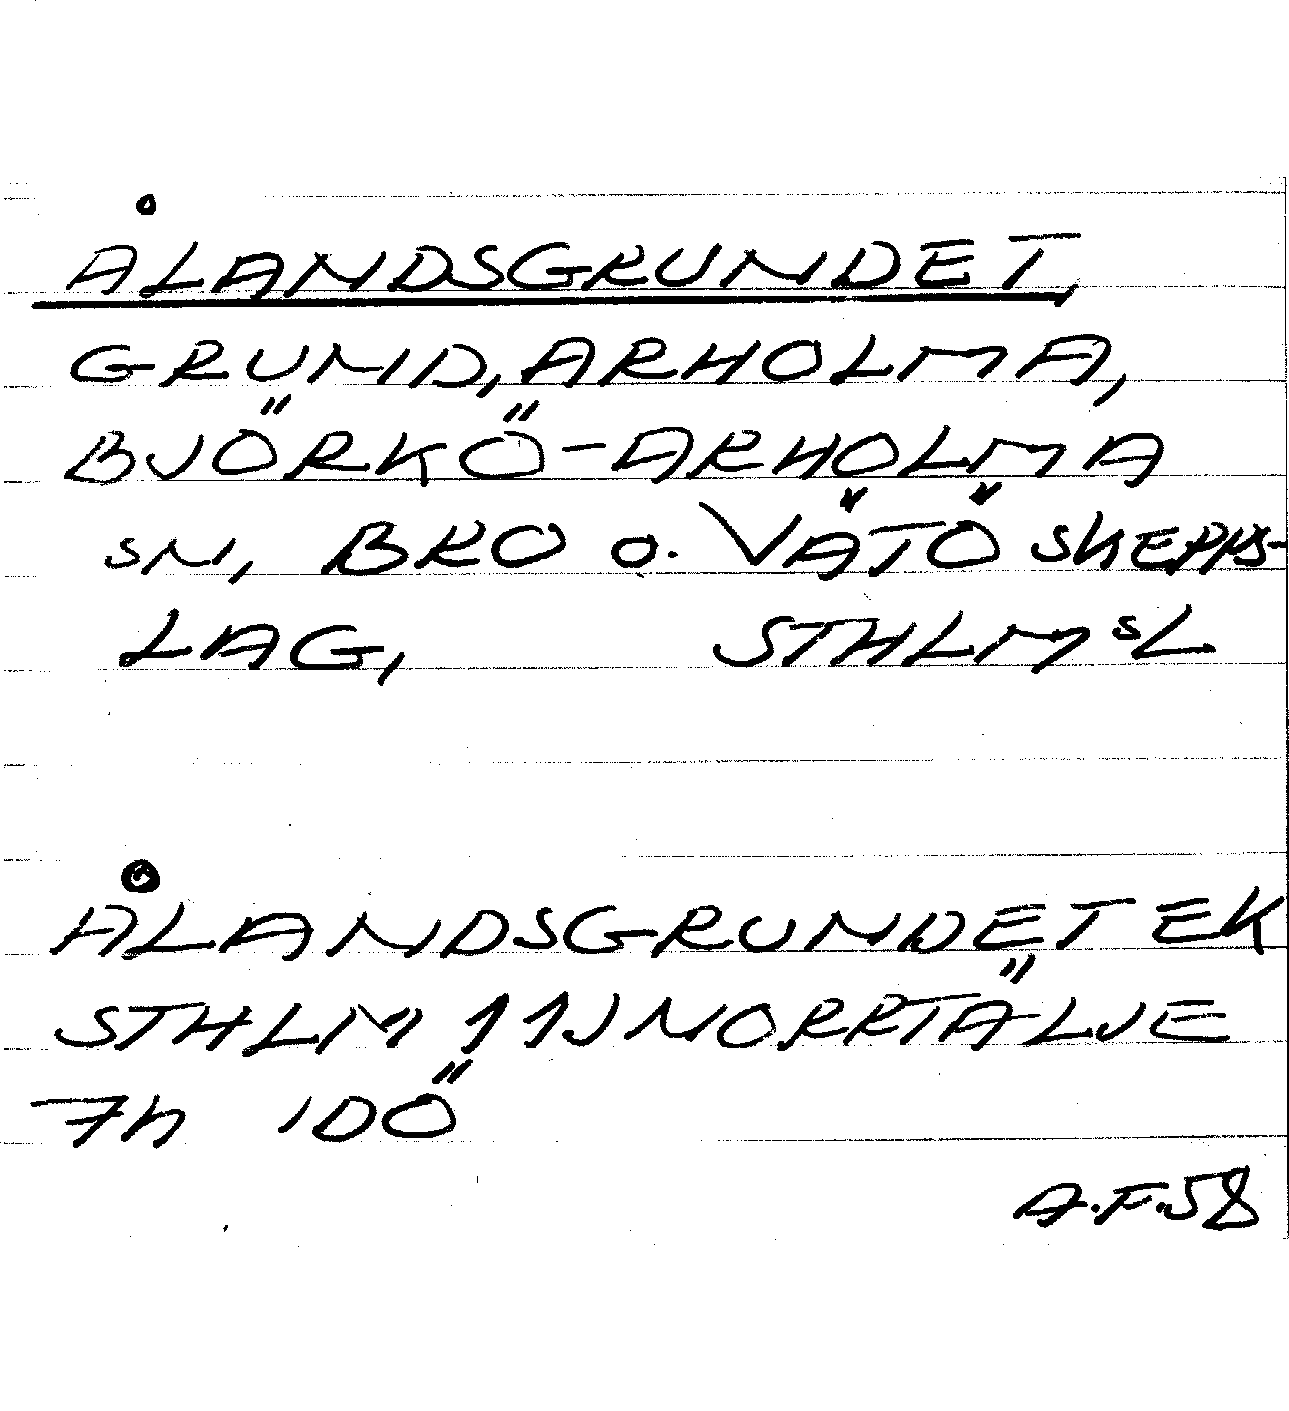 ÅLANDSGRUNDET,
GRUND, ARHOLMA,
BJÖRKÖ-ARHOLMA
SN, BRO O. VÄTÖ SKEPPS-
LAG, STHLMSL
ÅLANDSGRUNDET EK
STHLM 11J NORRTÄLJE
7h IDÖ
A.F.58